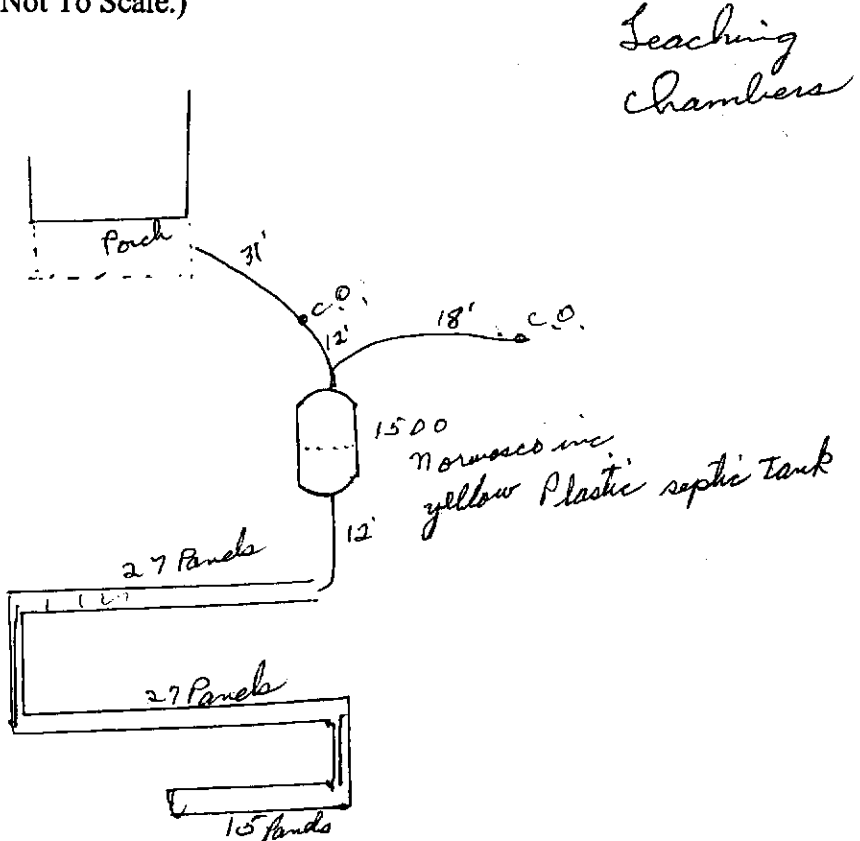 Not To Scale.)
Leaching
Chambers
Porch
31'
C.O.
12'
18'
C.O.
1500
Normosco inc
yellow Plastic septic Tank
12'
27 Panels
27 Panels
15 Panels